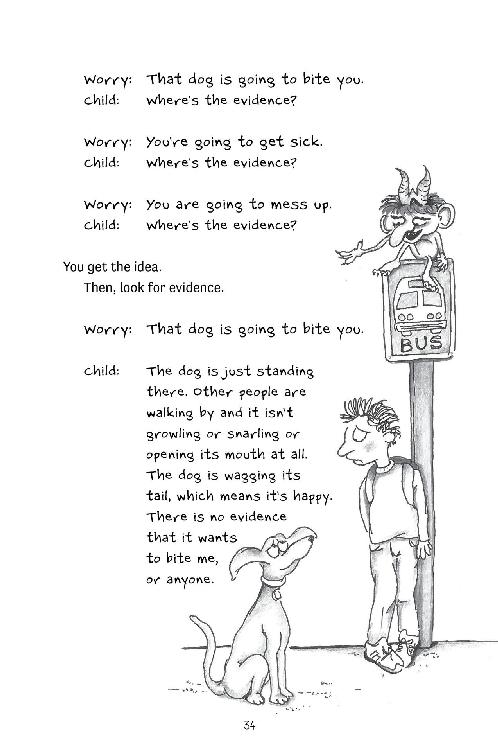 Worry: That dog is going to bite you.
Child: Where's the evidence?
Worry: You're going to get sick.
Child: Where's the evidence?
Worry: You are going to mess up.
Child: Where's the evidence?
You get the idea.
Then, look for evidence.
Worry: That dog is going to bite you.
Child: The dog is just standing
there. Other people are
walking by and it isn't
growling or snarling or
opening its mouth at all.
The dog is wagging its
tail, which means it's happy.
There is no evidence
that it wants
to bite me,
or anyone.
BUS
34